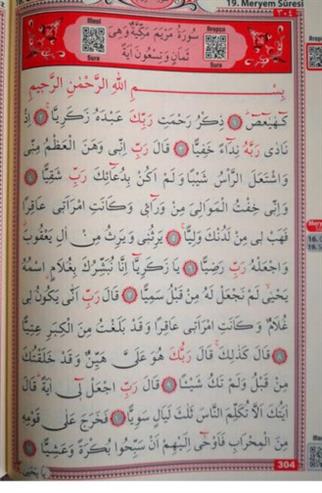 19. Meryem Sûresi
٣٠٤
Meal
Arapça
سُورَةُ مَرْيَمَ مَكِّيَّةٌ وَهِيَ
ثَمَانٍ وَتِسْعُونَ اٰيَةً
Sure
Sure
بِسْمِ اللّٰهِ الرَّحْمٰنِ الرَّحِيمِ
كٓهٰيٰعٓصٓ ﴿١﴾ ذِكْرُ رَحْمَتِ رَبِّكَ عَبْدَهُ زَكَرِيَّا ﴿٢﴾ اِذْ
نَادٰى رَبَّهُ نِدَٓاءً خَفِيًّا ﴿٣﴾ قَالَ رَبِّ اِنّ۪ي وَهَنَ الْعَظْمُ مِنّ۪ي
وَاشْتَعَلَ الرَّأْسُ شَيْبًا وَلَمْ اَكُنْ بِدُعَٓائِكَ رَبِّ شَقِيًّا ﴿٤﴾
وَاِنّ۪ي خِفْتُ الْمَوَالِيَ مِنْ وَرَٓاء۪ي وَكَانَتِ امْرَاَت۪ي عَاقِرًا
فَهَبْ ل۪ي مِنْ لَدُنْكَ وَلِيًّا ﴿٥﴾ يَرِثُن۪ي وَيَرِثُ مِنْ اٰلِ يَعْقُوبَ
وَاجْعَلْهُ رَبِّ رَضِيًّا ﴿٦﴾ يَا زَكَرِيَّٓا اِنَّا نُبَشِّرُكَ بِغُلَامٍ اسْمُهُ
يَحْيٰى لَمْ نَجْعَلْ لَهُ مِنْ قَبْلُ سَمِيًّا ﴿٧﴾ قَالَ رَبِّ اَنّٰى يَكُونُ ل۪ي
غُلَامٌ وَكَانَتِ امْرَاَت۪ي عَاقِرًا وَقَدْ بَلَغْتُ مِنَ الْكِبَرِ عِتِيًّا
﴿٨﴾ قَالَ كَذٰلِكَ قَالَ رَبُّكَ هُوَ عَلَيَّ هَيِّنٌ وَقَدْ خَلَقْتُكَ
مِنْ قَبْلُ وَلَمْ تَكُ شَيْـًٔا ﴿٩﴾ قَالَ رَبِّ اجْعَلْ ل۪ٓي اٰيَةً قَالَ
اٰيَتُكَ اَلَّا تُكَلِّمَ النَّاسَ ثَلٰثَ لَيَالٍ سَوِيًّا ﴿١٠﴾ فَخَرَجَ عَلٰى قَوْمِه۪
مِنَ الْمِحْرَابِ فَاَوْحٰٓى اِلَيْهِمْ اَنْ سَبِّحُوا بُكْرَةً وَعَشِيًّا ﴿١١﴾
304
يَا يَحْيٰى